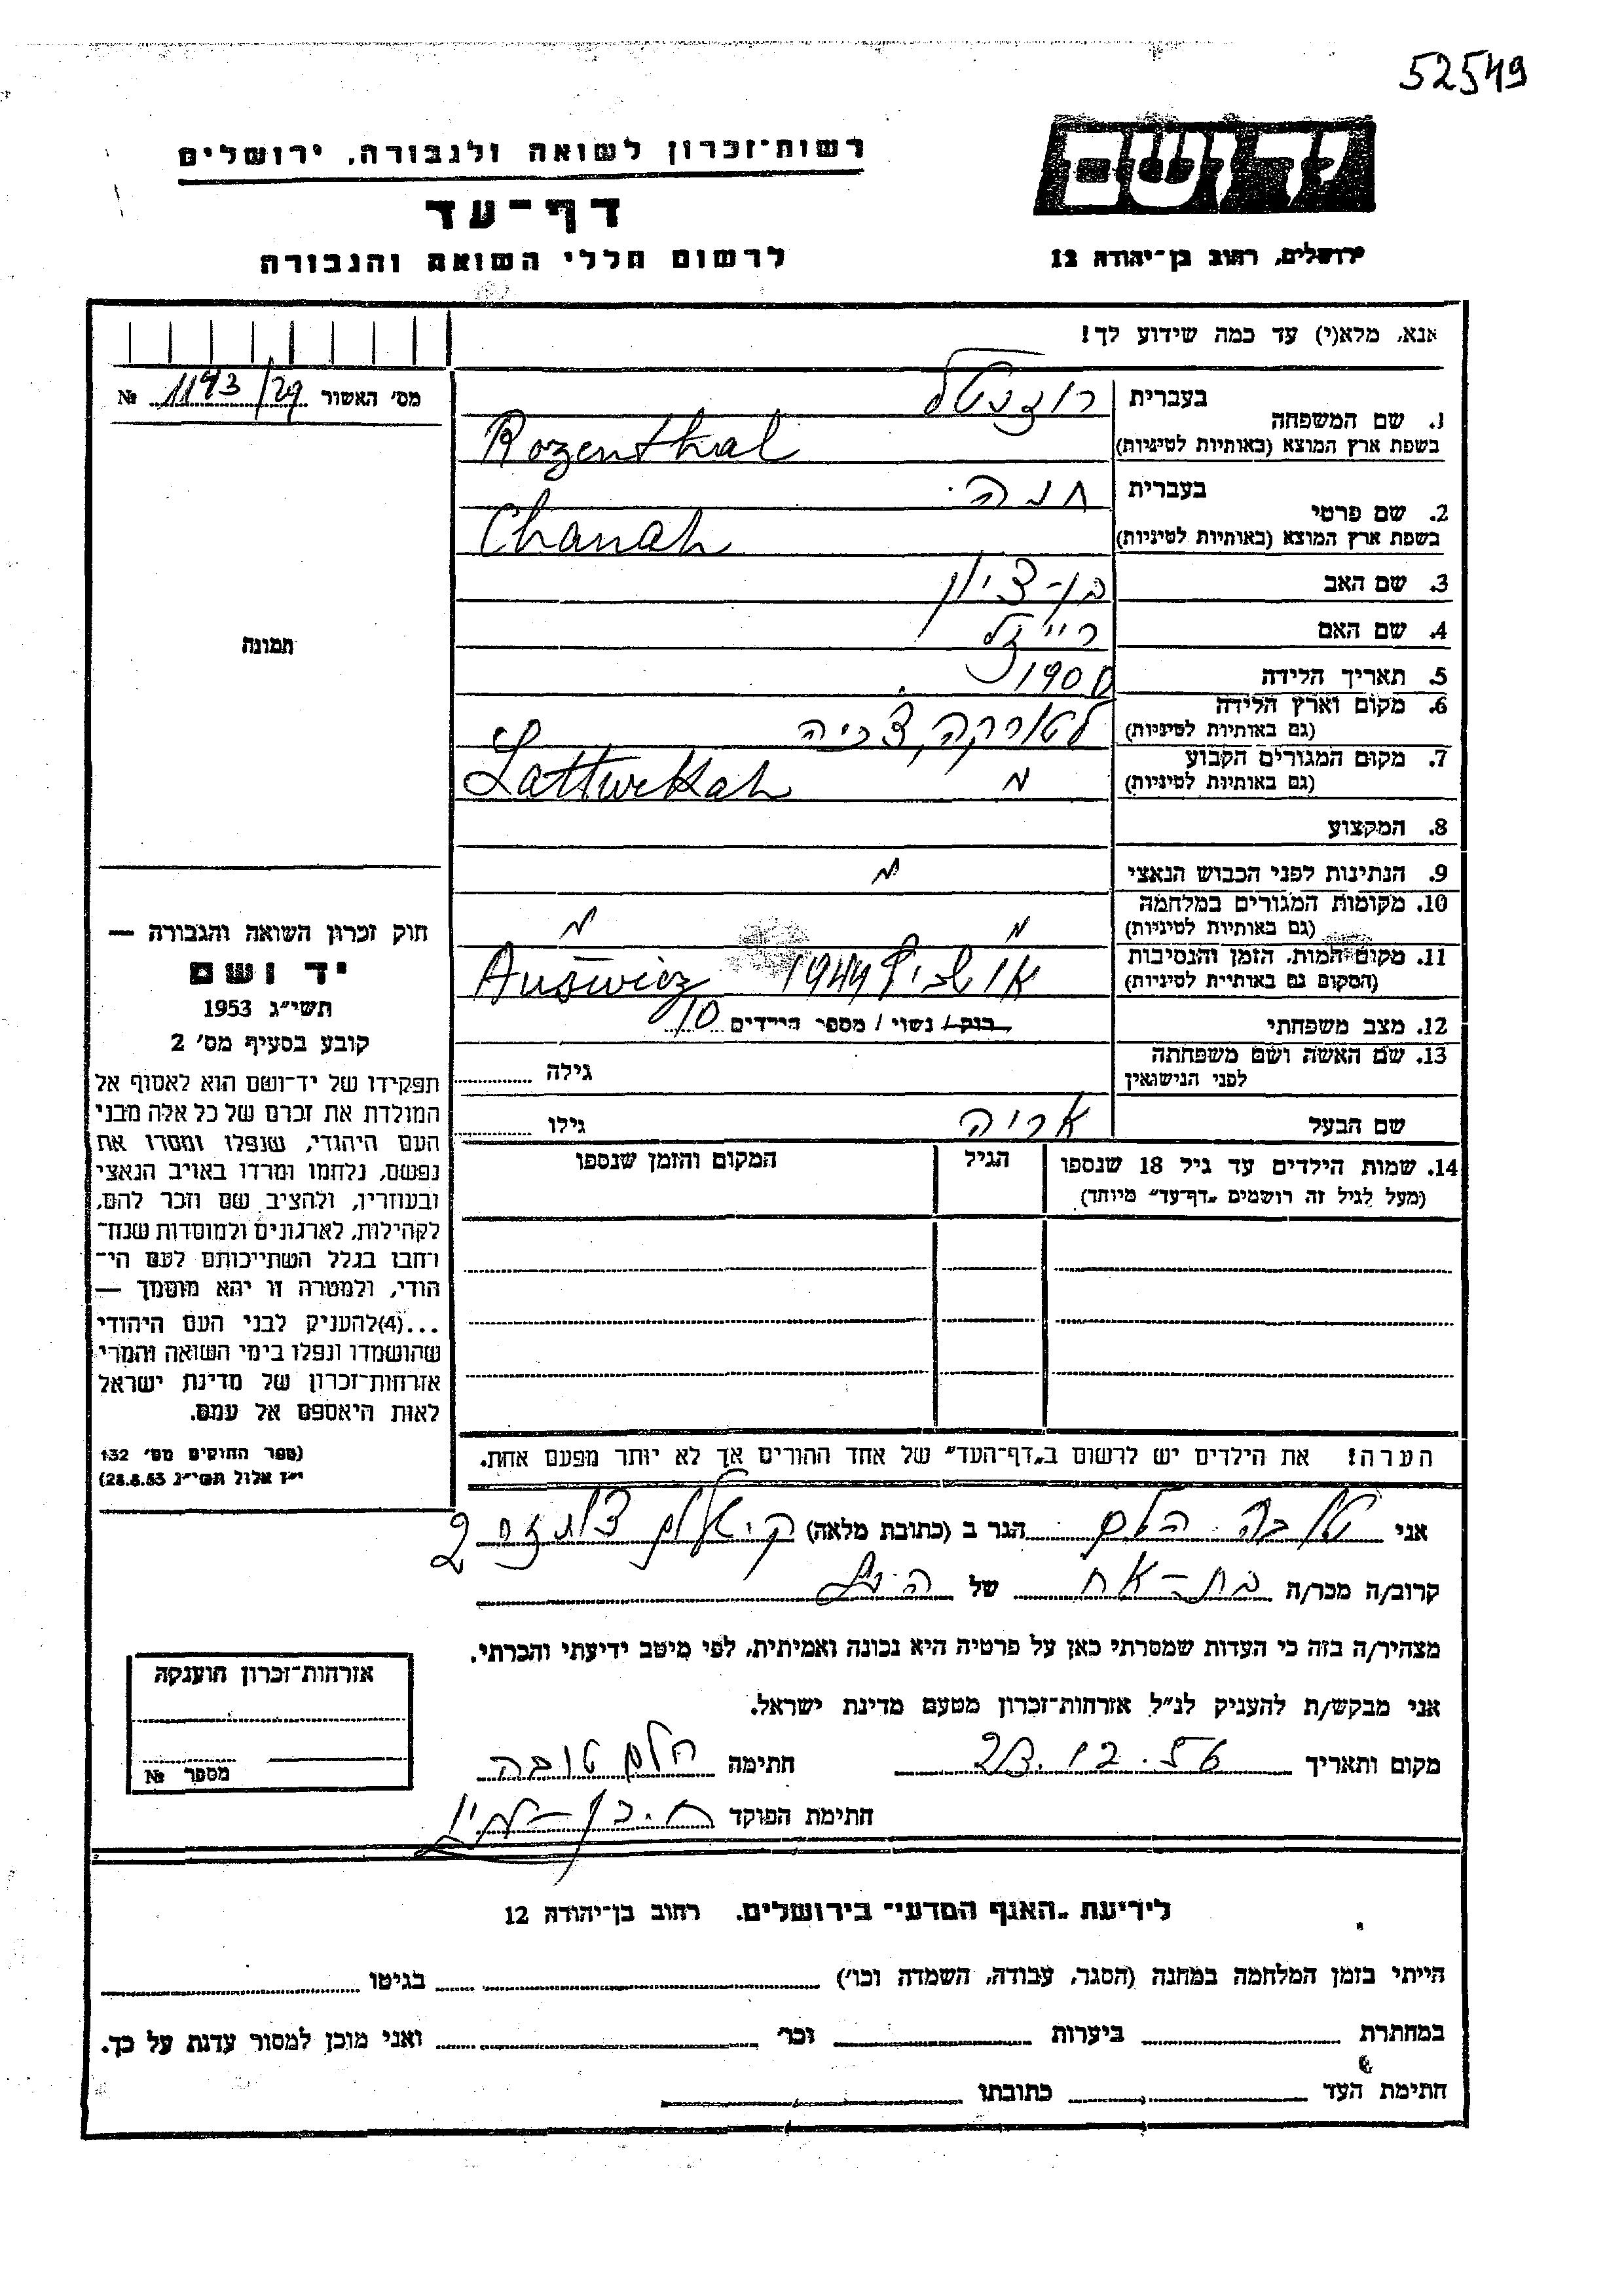 52549
רשות־זכרון לשואה ולגבורה, ירושלים
יד ושם
דף־עד
לרשום חללי השואה והגבורה
ירושלים, רחוב בן־יהודה 12
אנא, מלא(י) עד כמה שידוע לך!
מס׳ האשור № 1193/29
1. שם המשפחה בעברית רוזנטל
בשפת ארץ המוצא (באותיות לטיניות) Rozenthal
2. שם פרטי בעברית חנה
בשפת ארץ המוצא (באותיות לטיניות) Chanah
3. שם האב בן-ציון
4. שם האם רייזל
5. תאריך הלידה 1900
6. מקום וארץ הלידה (גם באותיות לטיניות)
7. מקום המגורים הקבוע (גם באותיות לטיניות)
8. המקצוע
9. הנתינות לפני הכבוש הנאצי
10. מקומות המגורים במלחמה (גם באותיות לטיניות)
11. מקום המות, הזמן והנסיבות (המקום גם באותיות לטיניות) 1944 Auswicz
12. מצב משפחתי רוק / נשוי / מספר הילדים 10
13. שם האשה ושם משפחתה לפני הנישואין גילה
שם הבעל אריה גילו
14. שמות הילדים עד גיל 18 שנספו הגיל המקום והזמן שנספו
(מעל לגיל זה רושמים „דף־עד” מיוחד)
הערה! את הילדים יש לרשום ב„דף־העד” של אחד ההורים אך לא יותר מפעם אחת.
תמונה
חוק זכרון השואה והגבורה —
יד ושם
תשי״ג 1953
קובע בסעיף מס׳ 2
תפקידו של יד־ושם הוא לאסוף אל
המולדת את זכרם של כל אלה מבני
העם היהודי, שנפלו ומסרו את
נפשם, נלחמו ומרדו באויב הנאצי
ובעוזריו, ולהציב שם וזכר להם,
לקהילות, לארגונים ולמוסדות שנח־
רחבו בגלל השתייכותם לעם הי־
הודי, ולמטרה זו יהא מוסמך —
...(4)להעניק לבני העם היהודי
שהושמדו ונפלו בימי השואה והמרי
אזרחות־זכרון של מדינת ישראל
לאות היאספם אל עמם.
(ספר החוקים מס׳ 132
י״ז אלול תשי״ג 28.8.53)
אני טובה הלם הגר ב (כתובת מלאה)
קרוב/ה מכר/ה בת-אח של
מצהיר/ה בזה כי העדות שמסרתי כאן על פרטיה היא נכונה ואמיתית, לפי מיטב ידיעתי והכרתי.
אני מבקש/ת להעניק לנ״ל אזרחות־זכרון מטעם מדינת ישראל.
מקום ותאריך 23.12.56 חתימה הלם טובה
חתימת הפוקד
אזרחות־זכרון הוענקה
מספר №
לידיעת „האגף המדעי” בירושלים, רחוב בן־יהודה 12
הייתי בזמן המלחמה במחנה (הסגר, עבודה, השמדה וכו׳) בגיטו
במחתרת ביערות וכו׳ ואני מוכן למסור עדות על כך.
חתימת העד כתובתו